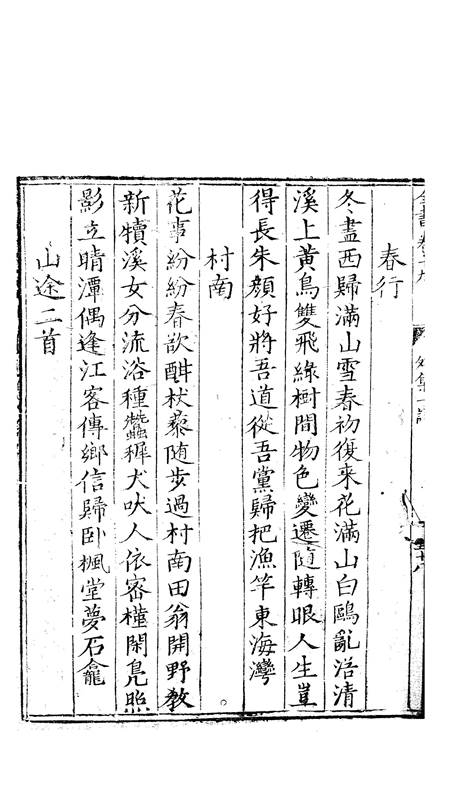 春行
冬盡西歸滿山雪春初復來花滿山白鷗亂浴清
溪上黃鳥雙飛綠樹間物色變遷隨轉眼人生豈
得長朱顏好將吾道從吾黨歸把漁竿東海灣
村南
花事紛紛春欲酣杖藜隨步過村南田翁開野教
新犢溪女分流浴種蠶穉犬吠人依密槿閑鳧照
影立晴潭偶逢江客傳鄉信歸臥楓堂夢石龕
山途二首